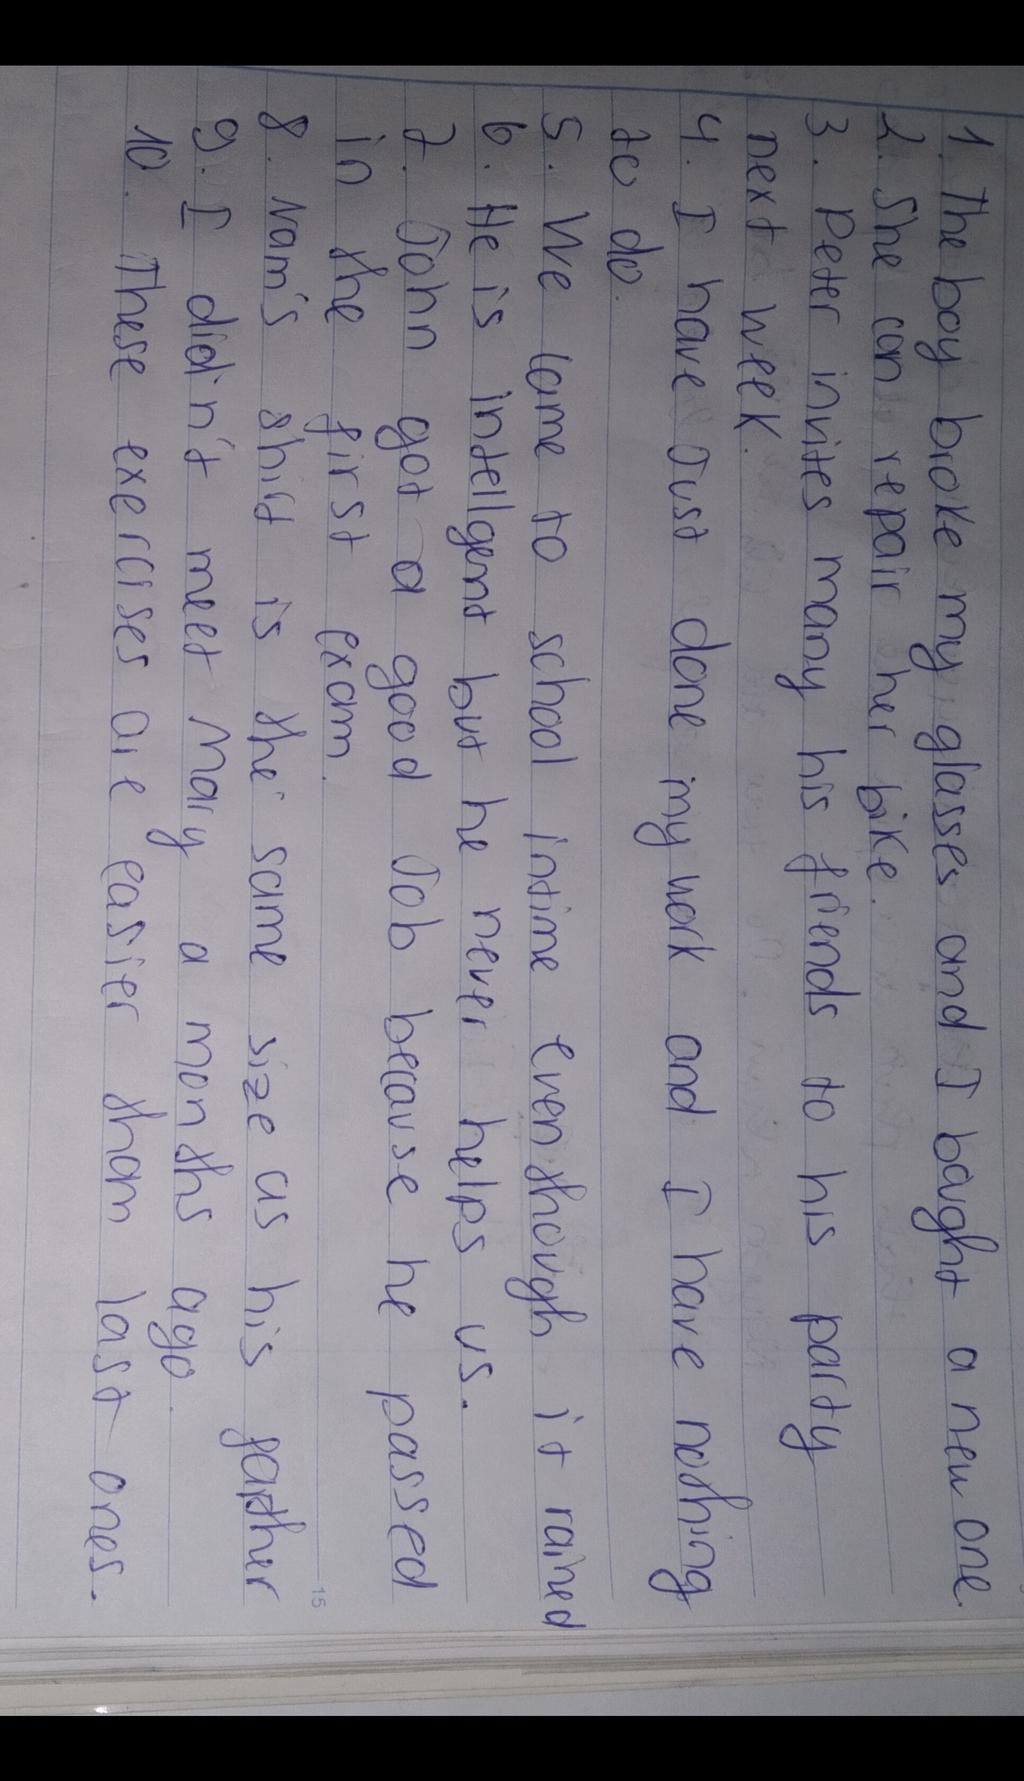 1. The boy broke my glasses and I bought a new one.
2. She can repair her bike.
3. Peter invites many his friends to his party
next week.
4. I have Just done my work and I have nothing
to do.
5. We came to school intime even though it rained
6. He is intellgent but he never helps us.
7. John got a good Job because he passed
in the first exam.
8. Nam's shirt is the same size as his father
9. I didn't meet Mary a months ago.
10. These exercises are easier than last ones.
15